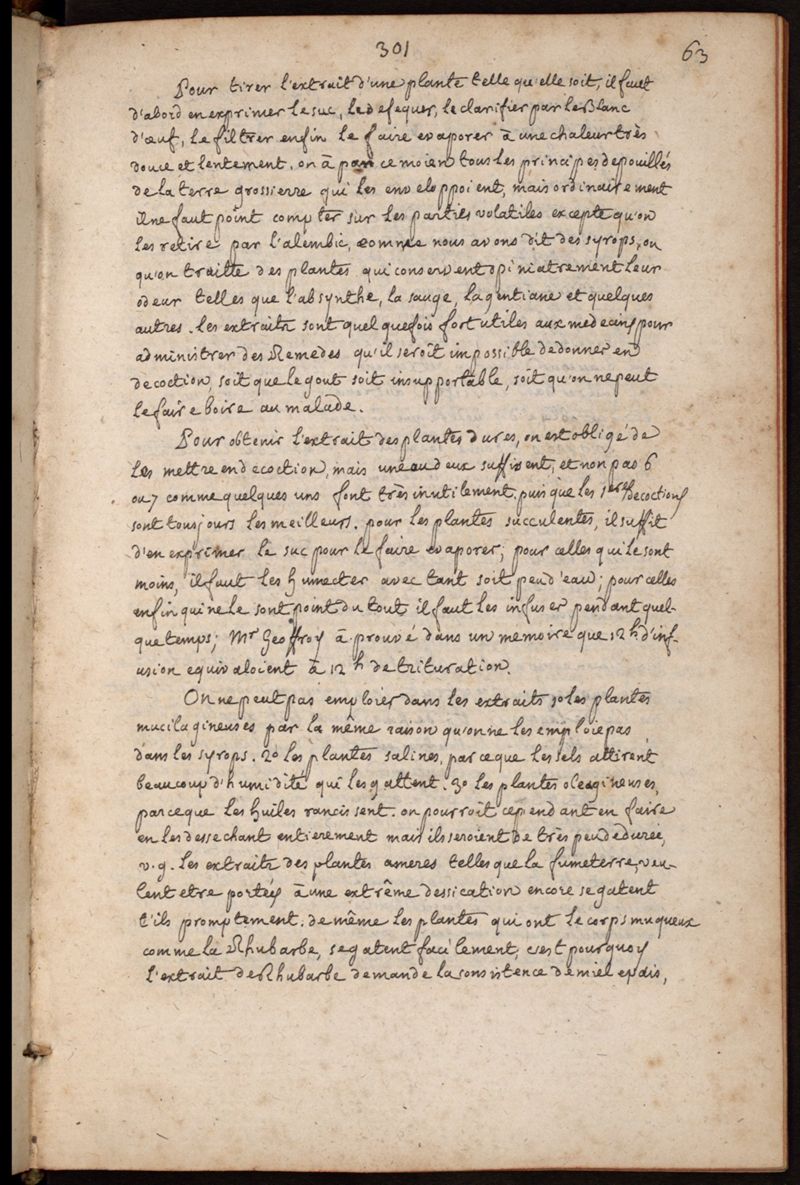 301
63
Pour tirer l'extrait d'une plante telle qu'elle soit, il faut
d'abord en exprimer le suc, le defequer, le clarifier par le Blanc
d'œuf, le filtrer enfin le faire evaporer à une chaleur très
douce et lentement. on à par ce moien tous les principes depouillés
de la terre grossierre qui les enveloppoient, mais ordinairement
il ne faut point compter sur les parties volatiles excepté qu'on
les retire par l'alembic, comme nous avons dit des syrops, ou
qu'on traitte des plantes qui conservent opiniatrement leur
odeur telles que l'absynthe, la sauge, la gentiane et quelques
autres. les extraits sont quelquefois fort utiles aux medecins pour
administrer des Remedes qu'il seroit impossible de donner en
decoction, soit que le gout soit insupportable, soit qu'on ne peut
le faire boire au malade.
Pour obtenir l'extrait des plantes dures, on est obligé de
les mettre en decoction, mais une ou deux suffisent, et non pas 6
ou 7 comme quelques uns font très inutilement, puis que les 1eres decoctions
sont toujours les meilleurs. pour les plantes succulentes, il suffit
d'en exprimer le suc pour le faire evaporer; pour celles qui le sont
moins, il faut les humecter avec tant soit peu d'eau; pour celles
enfin qui ne le sont point du tout il faut les infuser pendant quel-
que temps; Mr Geoffroy à prouvé dans un memoire que 12 h d'inf-
usion equivaloient à 12 h de trituration.
On ne peut pas emploier dans les extraits 1o les plantes
mucilagineuses par la même raison qu'on ne les emploie pas
dans les syrops. 2o les plantes salines, parceque les sels attirent
beaucoup d'humidité qui les gattent. 3o les plantes oleagineuses,
parceque les huiles rancissent. on pourroit cependant en faire
en les dessechant entierement mais ils seroient de très peu de durée,
v.g. les extraits des plantes ameres telles que la fumeterre, veu-
lent etre portés à une extrême dessication encore se gatent
t'ils promptement. de même les plantes qui ont le corps muqueux
comme la Rhubarbe, se gatent facilement, c'est pourquoy
l'extrait de Rhubarbe demande la consistence de miel epais,